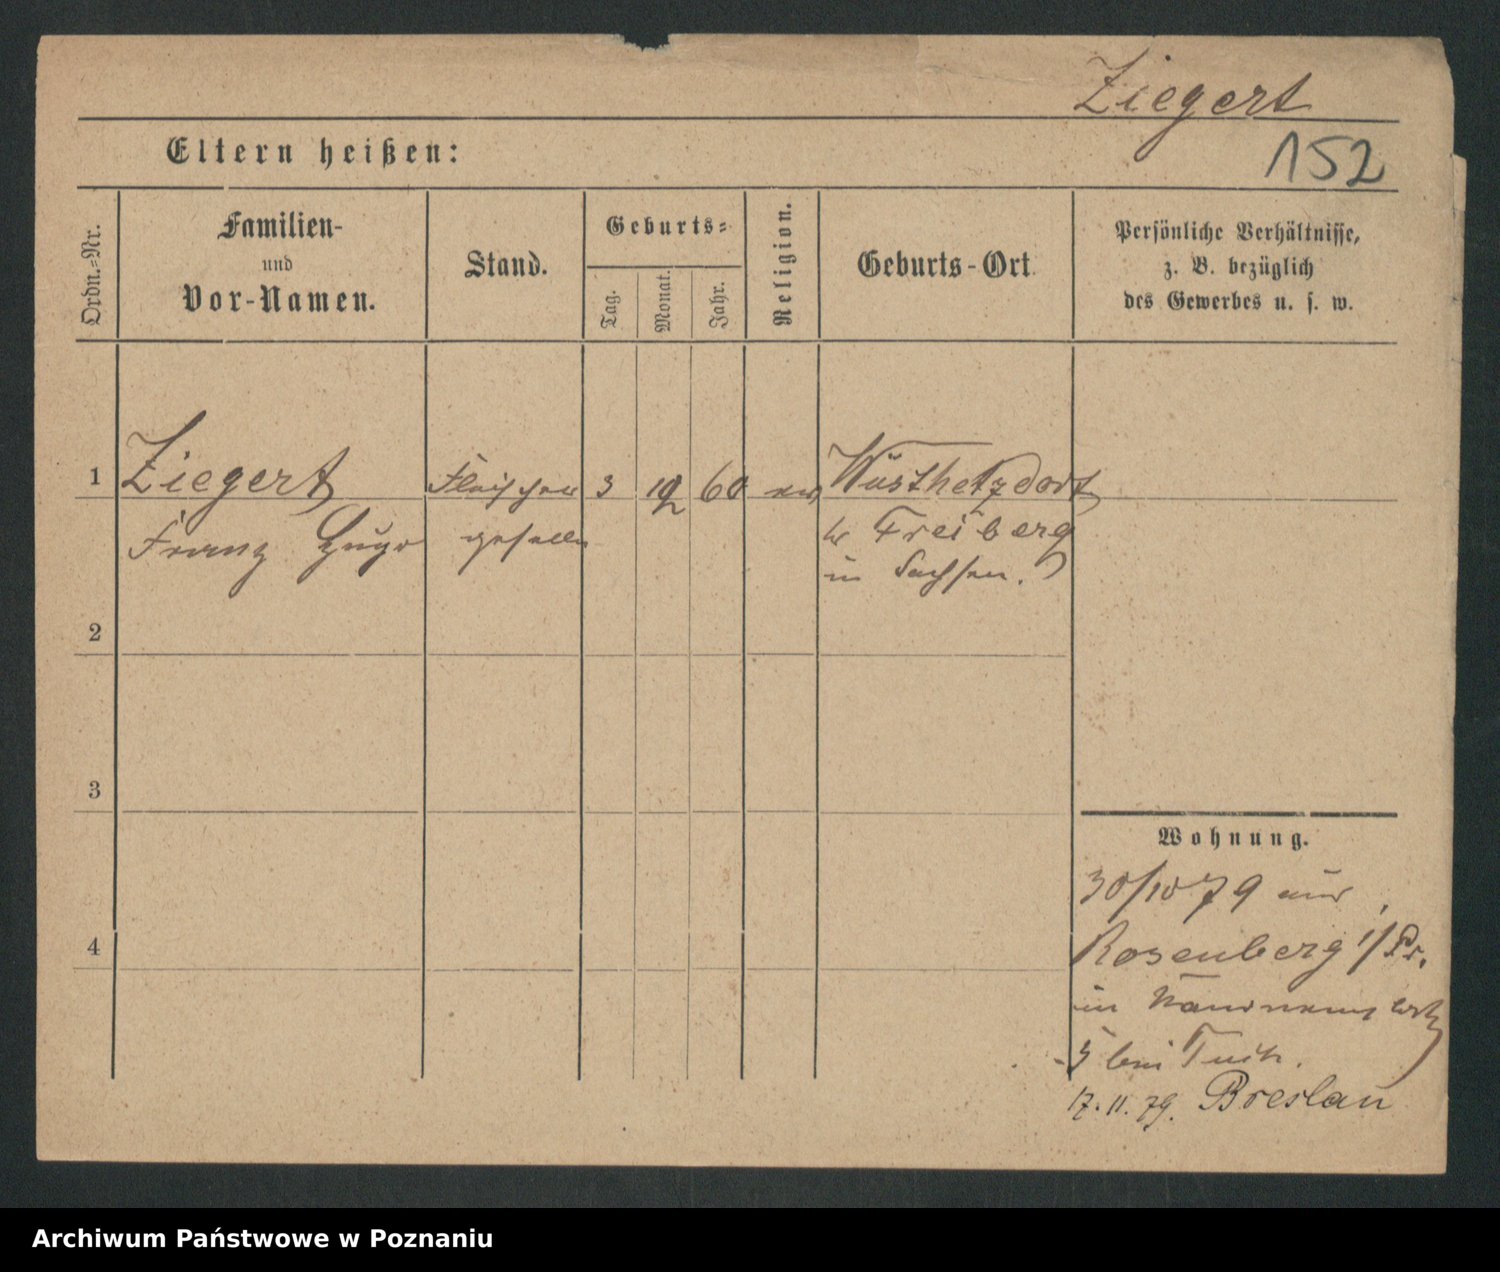 Ziegert
152
Eltern heißen:
Ordn.-Nr.
Familien-
und
Vor-Namen.
Stand.
Geburts-
Tag.
Monat.
Jahr.
Religion.
Geburts-Ort
Persönliche Verhältnisse,
z. B. bezüglich
des Gewerbes u. s. w.
1
Ziegert
Franz Hugo
Fleischer
geselle
3
60
ev
Wüsthetzdorf
Freiberg
in Sachsen.
2
3
4
Wohnung.
30/10 79 aus
Rosenberg i/Pr.
in
5 bei
17. 11. 79. Breslau
Archiwum Państwowe w Poznaniu